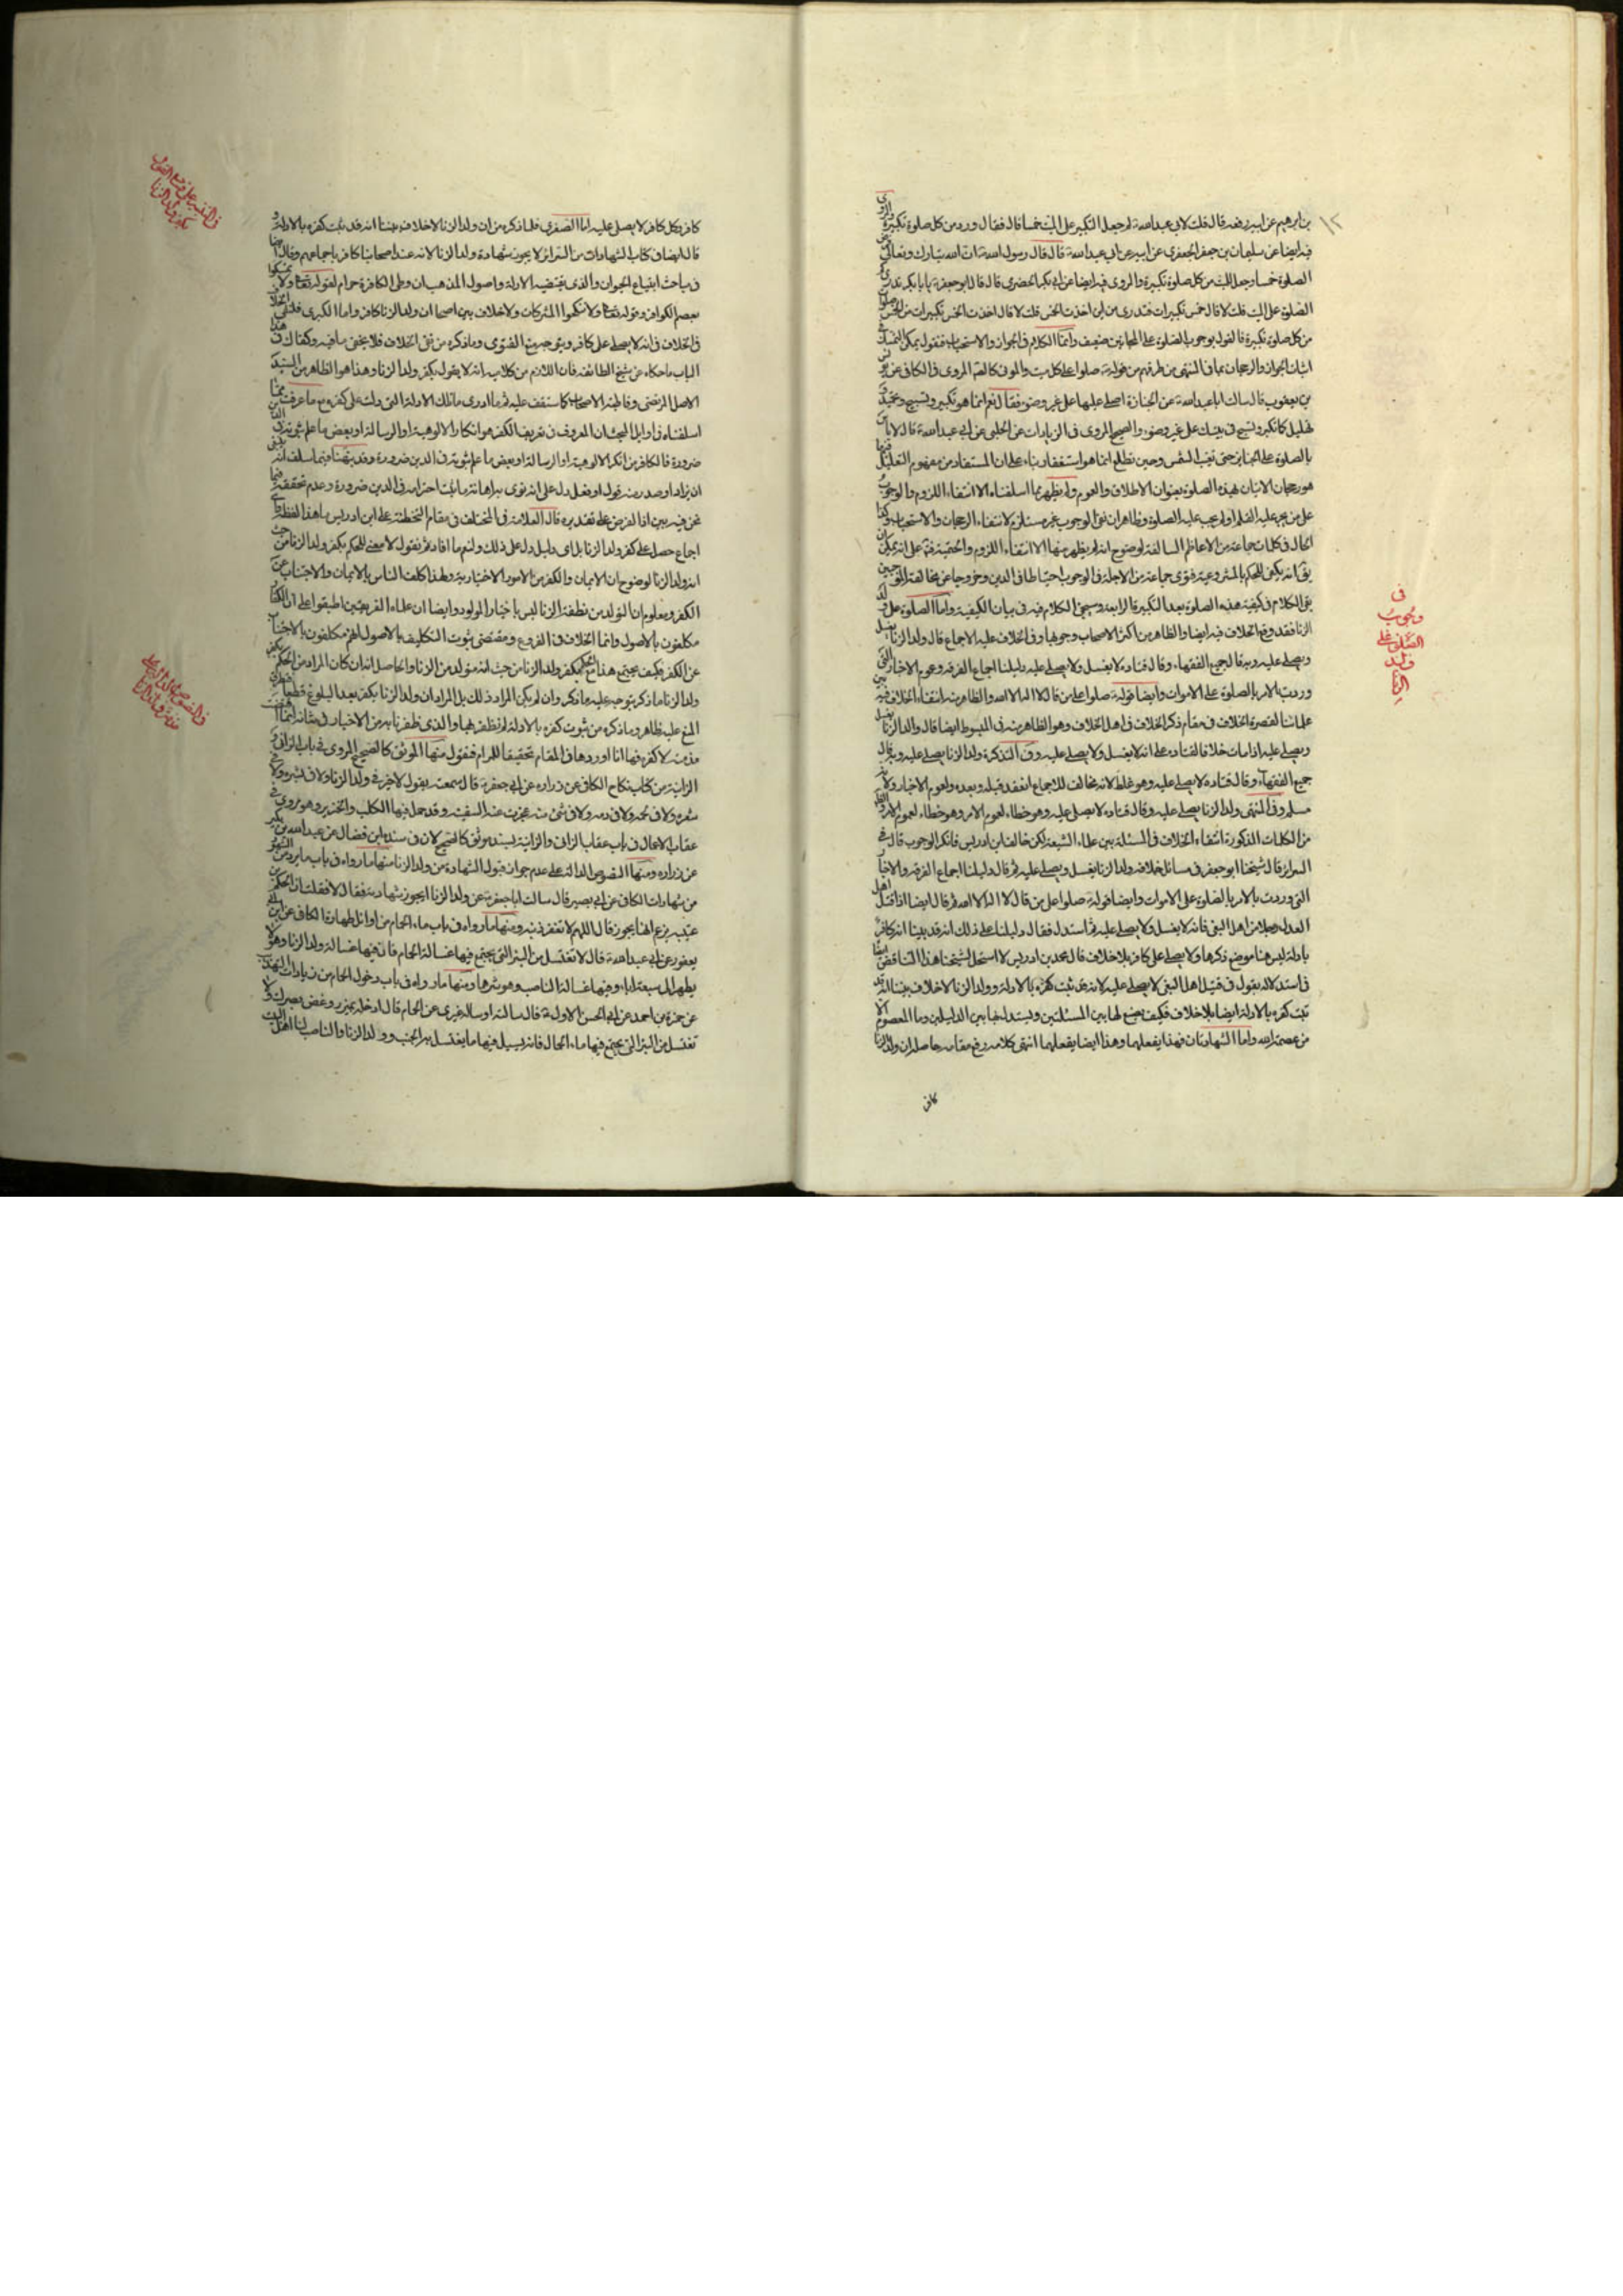 بن ابرهيم عن ابيه رفعه قال قلت لابي عبد الله لم جعل التكبير على الميت خمسا قال فقال ورد من كل صلوة تكبيرة والمروى
فيه ايضا عن سليمان بن جعفر الجعفرى عن ابيه عن ابي عبد الله قال قال رسول الله ان الله تبارك وتعالى فرض
الصلوة خمسا وجعل للميت من كل صلوة تكبيرة والمروى فيه ايضا عن ابي بكر الحضرمى قال قال ابو جعفر يا با بكر تدرى كم
الصلوة على الميت قلت لا قال خمس تكبيرات فتدرى من اين اخذت الخمس قلت لا قال اخذت الخمس تكبيرات من الخمس صلوات
من كل صلوة تكبيرة فالقول بوجوب الصلوة على المجانين ضعيف وانما الكلام في الجواز والاستحباب فنقول يمكن التمسك في
اثبات الجواز والرجحان بما في النهى من طرقهم من قوله صلوا على كل ميت والموثق كالصحيح المروى في الكافى عن يونس
بن يعقوب قال سالت ابا عبد الله عن الجنازة اصلى عليها على غير وضوء فقال نعم انما هو تكبير وتسبيح وتحميد و
تهليل كما تكبر وتسبح في بيتك على غير وضوء والصحيح المروى في الزيادات عن الحلبى عن ابي عبد الله قال لا باس
بالصلوة على الجنايز حين تغيب الشمس وحين تطلع انما هو استغفار بناء على ان المستفاد من مفهوم التعليل
هو رجحان الاتيان بهذه الصلوة بعنوان الاطلاق والعموم ولم يظهر مما اسلفناه الا انتفاء اللزوم والوجوب
على من يجر عليه القلم او لم يجب عليه الصلوة وظاهر ان نفى الوجوب غير مستلزم لانتفاء الرجحان والاستحباب وكذا
الحال في كلمات جماعة من الاعاظم السالفة لوضوح انه لم يظهر منها الا انتفاء اللزوم والحتمية فقط على انه يمكن ان
يق انه يكفى للحكم بالمشروعية فتوى جماعة من الاجلة في الوجوب احتياطا في الدين وخروجا عن مخالفة الموجبين
بقى الكلام في كيفية هذه الصلوة بعد التكبيرة الرابعة وسيجئ الكلام فيه في بيان الكيفية واما الصلوة على ولد
الزنا فقد وقع الخلاف فيه ايضا والظاهر من اكثر الاصحاب وجوبها وفي الخلاف عليه الاجماع قال ولد الزنا يغسل
ويصلى عليه وبه قال جميع الفقهاء وقال قتاده لا يغسل ولا يصلى عليه دليلنا اجماع الفرقة وعموم الاخبار التى
وردت بالامر بالصلوة على الاموات وايضا قوله صلوا على من قال لا اله الا الله والظاهر منه انتفاء الخلاف فيه بين
علمائنا لقصره الخلاف في مقام ذكر الخلاف في اهل الخلاف وهو الظاهر منه في المبسوط ايضا قال ولد الزنا يغسل
ويصلى عليه اذا مات خلافا لقتاده على انه لا يغسل ولا يصلى عليه وفي التذكرة ولد الزنا يصلى عليه وبه قال
جميع الفقهاء وقال قتاده لا يصلى عليه وهو غلط لانه مخالف للاجماع انعقد قبله وبعده ولعموم الاخبار ولانه
مسلم وفي المنتهى ولد الزنا يصلى عليه وقال قتاده لا يصلى عليه وهو خطاء لعموم الامر وهو خطاء لعموم الامر والظاهر
من الكلمات المذكورة انتفاء الخلاف في المسئلة بين علماء الشيعة لكن خالف ابن ادريس فانكر الوجوب قال في
السرائر قال شيخنا ابو جعفر في مسائل خلافه ولد الزنا يغسل ويصلى عليه ثم قال دليلنا اجماع الفرقة والاخبار
التى وردت بالامر بالصلوة على الاموات وايضا قوله صلوا على من قال لا اله الا الله ثم قال ايضا اذا قتل اهل
العدل رجلا من اهل البغى فانه لا يغسل ولا يصلى عليه ثم استدل فقال دليلنا على ذلك انه قد بينا انه كافر
بادلة ليس هنا موضع ذكرها ولا يصلى على كافر بلا خلاف قال محمد بن ادريس لا استحل لشيخنا هذا التناقض
في استدلاله يقول في قتيل اهل البغى لا يصلى عليه لانه قد ثبت كفره بالادلة وولد الزنا لا خلاف بيننا انه قد
ثبت كفره بالادلة ايضا بلا خلاف فكيف يضع لها بين المسئلتين ويستدل بها بين الدليلين وما المعصوم الا
من عصمه الله واما الشهادتان فهذا يفعلهما وهذا ايضا يفعلهما انتهى كلامه رفع مقامه حاصله ان ولد الزنا
كافر
في
وجوب
الصلوة على
ولد
الزنا
كافر وكل كافر لا يصلى عليه اما الصغرى فلما ذكره من ان ولد الزنا لا خلاف بيننا انه قد ثبت كفره بالادلة و
قال ايضا في كتاب الشهادات من السرائر لا يجوز شهادة ولد الزنا لانه عند اصحابنا كافر باجماعهم وقال ايضا
في باحث ابتياع الحيوان والذى يقتضيه الادلة واصول المذهب ان وطى الكافرة حرام لقوله تعالى ولا تمسكوا
بعصم الكوافر وقوله تعالى ولا تنكحوا المشركات ولا خلاف بين اصحابنا ان ولد الزنا كافر واما الكبرى فلنفى الخلاف
في الخلاف في انه لا يصلى على كافر ويتوجه عليه في الفتوى وما ذكره من نفى الخلاف فلا يخفى ما فيه وكفاك في هذا
الباب ما حكاه عن شيخ الطائفة فان اللازم من كلامه انه لا يقول بكفر ولد الزنا وهذا هو الظاهر من السيد
الاصل المرتضى وقاطبة الاصحاب كما ستقف عليه ثم ما ادرى ما تلك الادلة التى دلت على كفره مع ما عرفت مما
اسلفناه في اوايل المبحث ان المعروف في تعريف الكفر هو انكار الالوهية او الرسالة او بعض ما علم ثبوته في الدين
ضرورة فالكافر من انكر الالوهية او الرسالة او بعض ما علم ثبوته في الدين ضرورة وقد نبهنا فيما سلف انه ينبغى
ان يزاد او صدر منه قول او فعل دل على انه نوى به اهانة ما يجب احترامه في الدين ضرورة وعدم تحققه فيما
نحن فيه بين اذ الفرض على تقديره قال العلامة في المختلف في مقام التخطئة على ابن ادريس ما هذا لفظه واى
اجماع حصل على كفر ولد الزنا بل اى دليل دل على ذلك ولنعم ما افاد لانا نقول لا معنى للحكم بكفر ولد الزنا من حيث
انه ولد الزنا لوضوح ان الايمان والكفر من الامور الاختيارية ولهذا كلف الناس بالايمان والاجتناب عن
الكفر ومعلوم ان التولد من نطفة الزنا ليس باختيار المولود وايضا ان علماء الفريقين اطبقوا على ان الكفار
مكلفون بالاصول وانما الخلاف في الفروع ومقتضى ثبوت التكليف بالاصول انهم مكلفون بالاجتناب
عن الكفر فكيف يجتمع هذا مع الحكم بكفر ولد الزنا من حيث انه متولد من الزنا والحاصل انه ان كان المراد من الحكم بكفر
ولد الزنا ما ذكر يتوجه عليه ما ذكر وان لم يكن المراد ذلك بل المراد ان ولد الزنا يكفر بعد البلوغ قطعا
المنع عليه ظاهر وما ذكره من ثبوت كفره بالادلة لم نظفر بها والذى ظفرنا به من الاخبار في شانه انما اقتضت
مذمته لا كفره فها انا اوردها في المقام تحقيقا للمرام فنقول منها الموثق كالصحيح المروى في باب الزانى و
الزانية من كتاب نكاح الكافى عن زراره عن ابي جعفر قال سمعته يقول لا خير في ولد الزنا ولا في بشره ولا في
شعره ولا في لحمه ولا في دمه ولا في شئ منه عجزت عنه السفينة وقد حمل فيها الكلب والخنزير وهو مروى في
عقاب الاعمال في باب عقاب الزانى والزانية بسند موثق كالصحيح لان في سنده ابن فضال عن عبد الله بن بكير
عن زراره ومنها النصوص الدالة على عدم جواز قبول الشهادة من ولد الزنا منها ما رواه في باب ما يرد من الشهود
من شهادات الكافى عن ابي بصير قال سالت ابا جعفر عن ولد الزنا ايجوز شهادته فقال لا فقلت ان الحكم بن
عتيبه يزعم انها يجوز فقال اللهم لا تغفر ذنبه ومنها ما رواه في باب ماء الحمام من اوائل طهارة الكافى عن ابن ابي
يعفور عن ابي عبد الله قال لا تغتسل من البئر التى يجتمع فيها غسالة الحمام فان فيها غسالة ولد الزنا وهو لا
يطهر الى سبعة اباء وفيها غسالة الناصب وهو شرهما ومنها ما رواه في باب دخول الحمام من زيادات التهذيب
عن حمزة بن احمد عن ابي الحسن الاول قال سالته او ساله غيرى عن الحمام قال ادخله بمئزر وغض بصرك ولا
تغتسل من البئر التى يجتمع فيها ماء الحمام فانه يسيل فيها ما يغتسل به الجنب وولد الزنا والناصب لنا اهل البيت